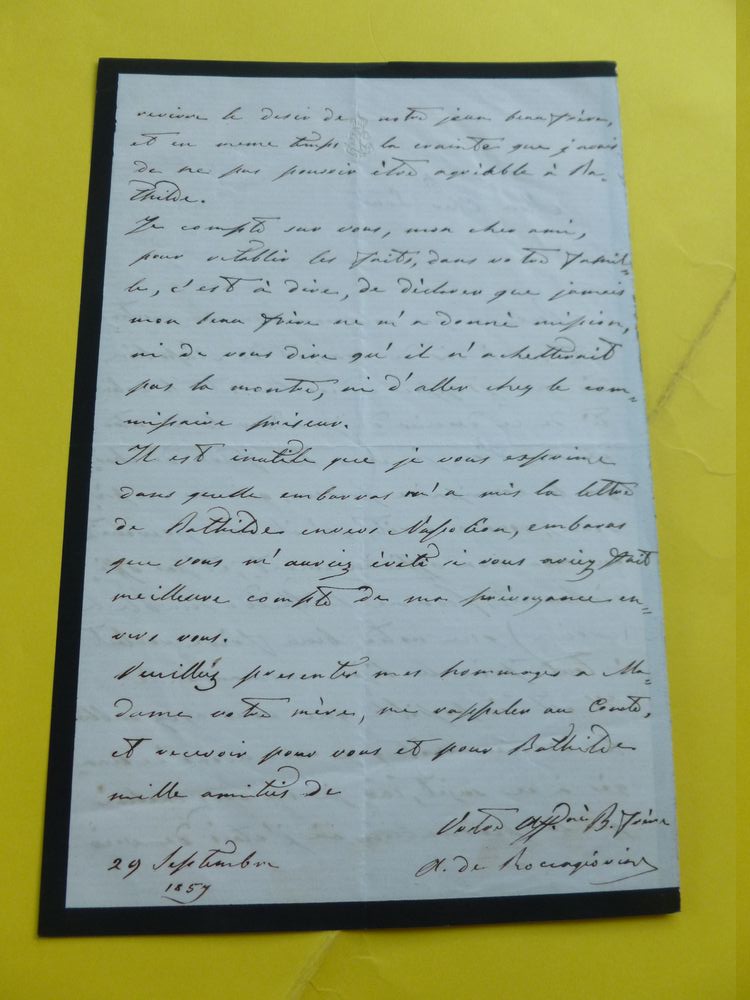 revivre le desir de notre jeun beau frère,
et en meme temps la crainte que j'avais
de ne pas pouvoir être agréable à Ba-
thilde.
Je compte sur vous, mon cher ami,
pour retablir les faits, dans votre famil-
le, c'est à dire, de déclarer que jamais
mon beau frère ne m'a donné mission,
ni de vous dire qu'il n'achetterait
pas la montre, ni d'aller chez le com-
missaire priseur.
Il est inutile que je vous exprime
dans quelle embarras m'a mis la lettre
de Bathilde envers Napoléon, embaras
que vous m'auriez évité si vous aviez fait
meilleure compte de ma prévoyance en-
vers vous.
Veuilléz presenter mes hommages a Ma-
dame votre mère, me rappeler au Comte,
et recevoir pour vous et pour Bathilde
mille amitiés de
Votre Aff.né B. frère
A. de Roccagiovine
29 Septembre
1857